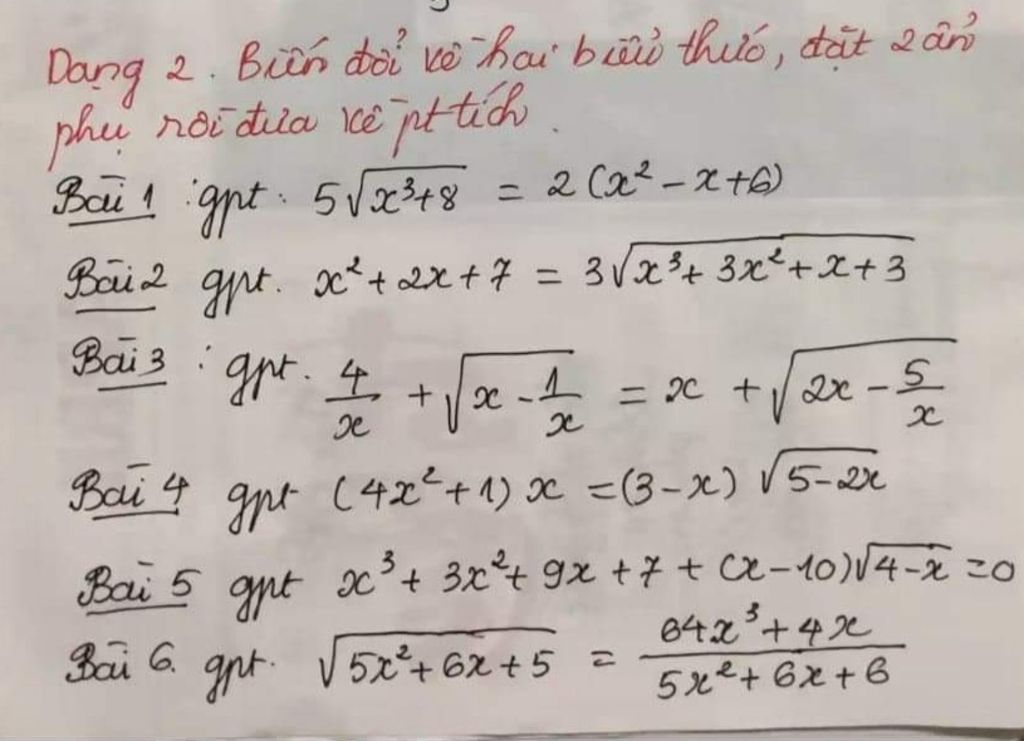 Dạng 2. Biến đổi về hai biểu thức, đặt 2 ẩn
phụ rồi đưa về pt tích.
Bài 1 : gpt. 5√(x³+8) = 2(x² - x + 6)
Bài 2 gpt. x² + 2x + 7 = 3√(x³ + 3x² + x + 3)
Bài 3 : gpt. 4/x + √(x - 1/x) = x + √(2x - 5/x)
Bài 4 gpt (4x² + 1) x = (3 - x) √(5 - 2x)
Bài 5 gpt x³ + 3x² + 9x + 7 + (x - 10)√(4 - x) = 0
Bài 6. gpt. √(5x² + 6x + 5) = (64x³ + 4x)/(5x² + 6x + 6)